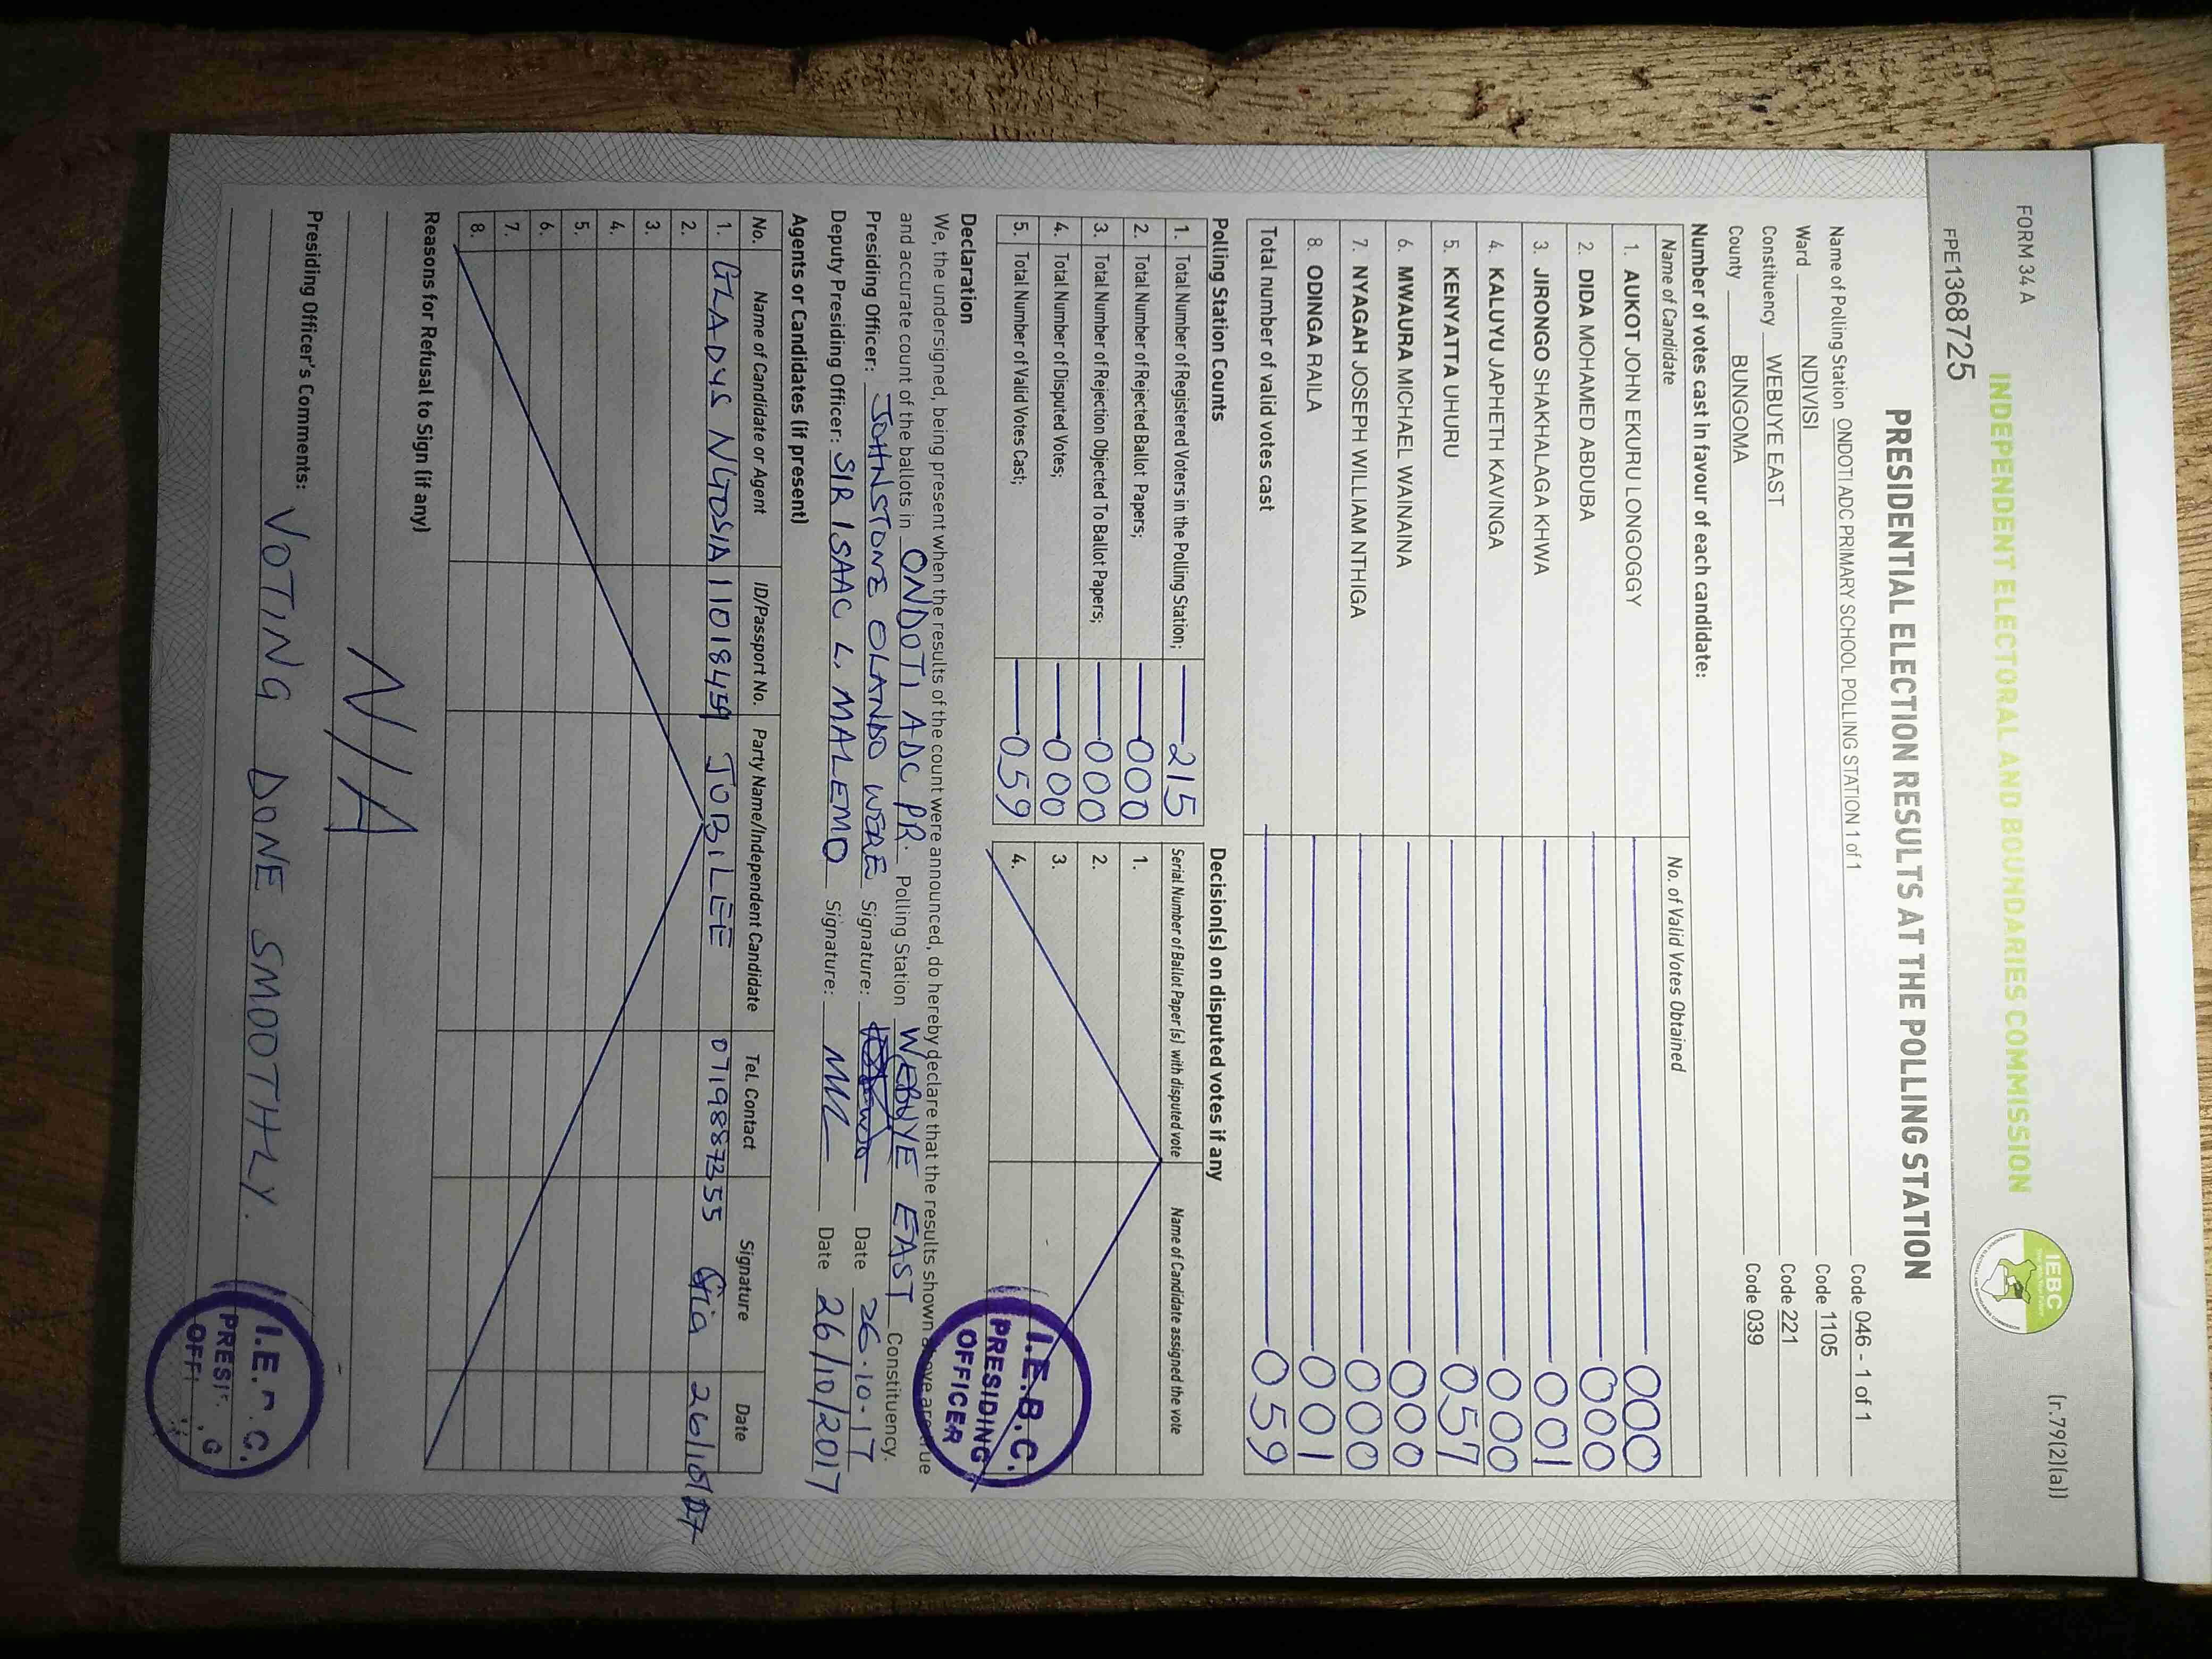 FORM 34 A
(r.79(2)(a))
INDEPENDENT ELECTORAL AND BOUNDARIES COMMISSION
IEBC
FPE1368725
PRESIDENTIAL ELECTION RESULTS AT THE POLLING STATION
Name of Polling Station ONDOTI ADC PRIMARY SCHOOL POLLING STATION 1 of 1 Code 046 - 1 of 1
Ward NDIVISI Code 1105
Constituency WEBUYE EAST Code 221
County BUNGOMA Code 039
Number of votes cast in favour of each candidate:
Name of Candidate No. of Valid Votes Obtained
1. AUKOT JOHN EKURU LONGOGGY 000
2. DIDA MOHAMED ABDUBA 000
3. JIRONGO SHAKHALAGA KHWA 001
4. KALUYU JAPHETH KAVINGA 000
5. KENYATTA UHURU 057
6. MWAURA MICHAEL WAINAINA 000
7. NYAGAH JOSEPH WILLIAM NTHIGA 000
8. ODINGA RAILA 001
Total number of valid votes cast 059
Polling Station Counts
1. Total Number of Registered Voters in the Polling Station; 215
2. Total Number of Rejected Ballot Papers; 000
3. Total Number of Rejection Objected To Ballot Papers; 000
4. Total Number of Disputed Votes; 000
5. Total Number of Valid Votes Cast; 059
Decision(s) on disputed votes if any
Serial Number of Ballot Paper (s) with disputed vote Name of Candidate assigned the vote
1.
2.
3.
4.
I.E.B.C.
PRESIDING
OFFICER
Declaration
We, the undersigned, being present when the results of the count were announced, do hereby declare that the results shown above are true
and accurate count of the ballots in ONDOTI ADC PR. Polling Station WEBUYE EAST Constituency.
Presiding Officer: JOHNSTONE OLANDO WERE Signature: Date 26.10.17
Deputy Presiding Officer: SIR ISAAC L. MALEMO Signature: Date 26/10/2017
Agents or Candidates (if present)
No. Name of Candidate or Agent ID/Passport No. Party Name/Independent Candidate Tel. Contact Signature Date
1. GLADYS NGOSIA 11018459 JUBILEE 0719887355 26/10/17
2.
3.
4.
5.
6.
7.
8.
Reasons for Refusal to Sign (if any)
N/A
Presiding Officer's Comments:
VOTING DONE SMOOTHLY.